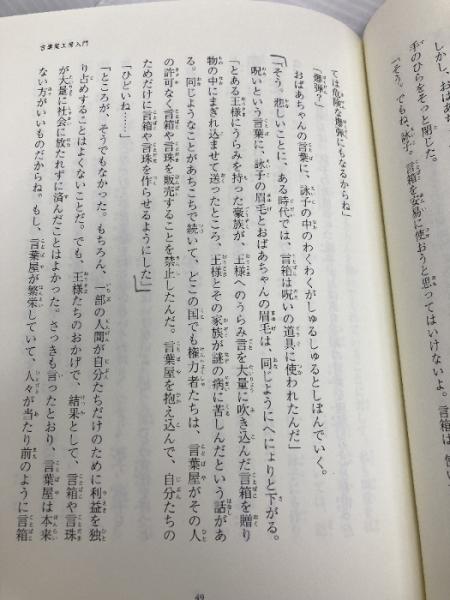 しかし、
手のひらをそっと閉じた。
「そう。でもね、詠子。言箱を安易に使おうと思ってはいけないよ。言箱は、使い
言葉屋工房入門
ては危険な爆弾にもなるからね」
「爆弾?」
おばあちゃんの言葉に、詠子の中のわくわくがしゅるしゅるとしぼんでいく。
「そう。悲しいことに、ある時代では、言箱は呪いの道具に使われたんだ」
呪いという言葉に、詠子の眉毛とおばあちゃんの眉毛は、同じようにへにょりと下がる。
「とある王様にうらみを持った豪族が、王様へのうらみ言を大量に吹き込んだ言箱を贈り
物の中にまぎれ込ませて送ったところ、王様とその家族が謎の病に苦しんだという話があ
る。同じようなことがあちこちで続いて、どこの国でも権力者たちは、言葉屋がその人
の許可なく言箱や言珠を販売することを禁止したんだ。言葉屋を抱え込んで、自分たちの
ためだけに言箱や言珠を作らせるようにした」
「ひどいね……」
「ところが、そうでもなかった。もちろん、一部の人間が自分たちだけのために利益を独
り占めすることはよくないことだ。でも、王様たちのおかげで、結果として、言箱や言珠
が大量に社会に放たれずに済んだことはよかった。さっきも言ったとおり、言葉屋は本来
ない方がいいものだからね。もし、言葉屋が繁栄していて、人々が当たり前のように言箱
49